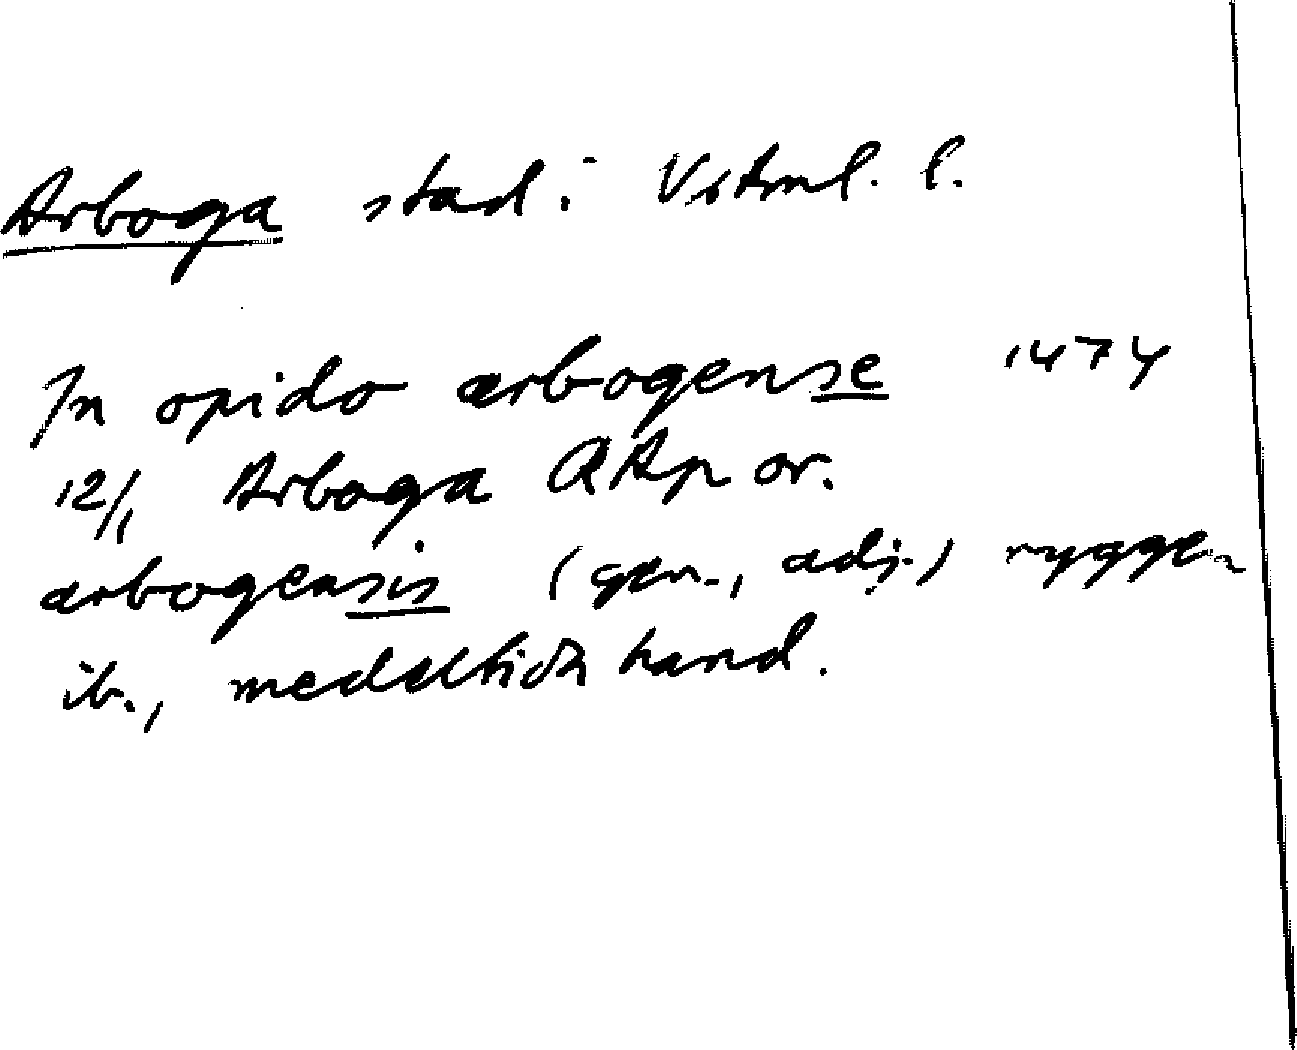 Arboga stad. Vstml. l.
In opido arbogense 1474
12/1 Arboga RAp or.
arbogensis (gen., adj.) ryggen
ib., medeltida hand.